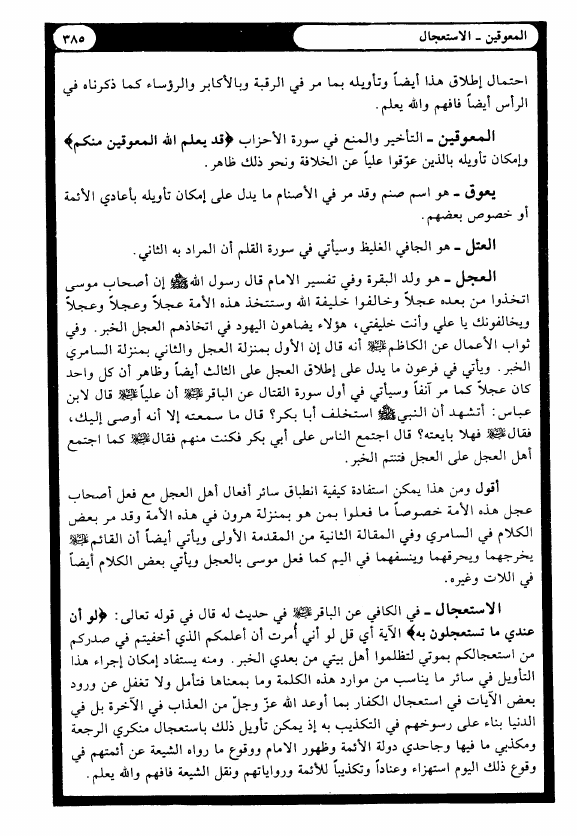 المعوقين - الاستعجال
٣٨٥
احتمال إطلاق هذا أيضاً وتأويله بما مر في الرقبة وبالأكابر والرؤساء كما ذكرناه في
الرأس أيضاً فافهم والله يعلم.
المعوقين - التأخير والمنع في سورة الأحزاب ﴿قد يعلم الله المعوقين منكم﴾
وإمكان تأويله بالذين عوّقوا علياً عن الخلافة ونحو ذلك ظاهر.
يعوق - هو اسم صنم وقد مر في الأصنام ما يدل على إمكان تأويله بأعادي الأئمة
أو خصوص بعضهم.
العتل - هو الجافي الغليظ وسيأتي في سورة القلم أن المراد به الثاني.
العجل - هو ولد البقرة وفي تفسير الامام قال رسول الله ﷺ إن أصحاب موسى
اتخذوا من بعده عجلاً وخالفوا خليفة الله وستتخذ هذه الأمة عجلاً وعجلاً وعجلاً
ويخالفونك يا علي وأنت خليفتي، هؤلاء يضاهون اليهود في اتخاذهم العجل الخبر. وفي
ثواب الأعمال عن الكاظم عليه السلام أنه قال إن الأول بمنزلة العجل والثاني بمنزلة السامري
الخبر. ويأتي في فرعون ما يدل على إطلاق العجل على الثالث أيضاً وظاهر أن كل واحد
كان عجلاً كما مر آنفاً وسيأتي في أول سورة القتال عن الباقر عليه السلام أن علياً عليه السلام قال لابن
عباس: أتشهد أن النبي ﷺ استخلف أبا بكر؟ قال ما سمعته إلا أنه أوصى إليك،
فقال عليه السلام فهلا بايعته؟ قال اجتمع الناس على أبي بكر فكنت منهم فقال عليه السلام كما اجتمع
أهل العجل على العجل فتنتم الخبر.
أقول ومن هذا يمكن استفادة كيفية انطباق سائر أفعال أهل العجل مع فعل أصحاب
عجل هذه الأمة خصوصاً ما فعلوا بمن هو بمنزلة هرون في هذه الأمة وقد مر بعض
الكلام في السامري وفي المقالة الثانية من المقدمة الأولى ويأتي أيضاً أن القائم عليه السلام
يخرجهما ويحرقهما وينسفهما في اليم كما فعل موسى بالعجل ويأتي بعض الكلام أيضاً
في اللات وغيره.
الاستعجال - في الكافي عن الباقر عليه السلام في حديث له قال في قوله تعالى: ﴿لو أن
عندي ما تستعجلون به﴾ الآية أي قل لو أني أُمرت أن أعلمكم الذي أخفيتم في صدركم
من استعجالكم بموتي لتظلموا أهل بيتي من بعدي الخبر. ومنه يستفاد إمكان إجراء هذا
التأويل في سائر ما يناسب من موارد هذه الكلمة وما بمعناها فتأمل ولا تغفل عن ورود
بعض الآيات في استعجال الكفار بما أوعد الله عزّ وجلّ من العذاب في الآخرة بل في
الدنيا بناء على رسوخهم في التكذيب به إذ يمكن تأويل ذلك باستعجال منكري الرجعة
ومكذبي ما فيها وجاحدي دولة الأئمة وظهور الامام ووقوع ما رواه الشيعة عن أئمتهم في
وقوع ذلك اليوم استهزاء وعناداً وتكذيباً للأئمة ورواياتهم ونقل الشيعة فافهم والله يعلم.